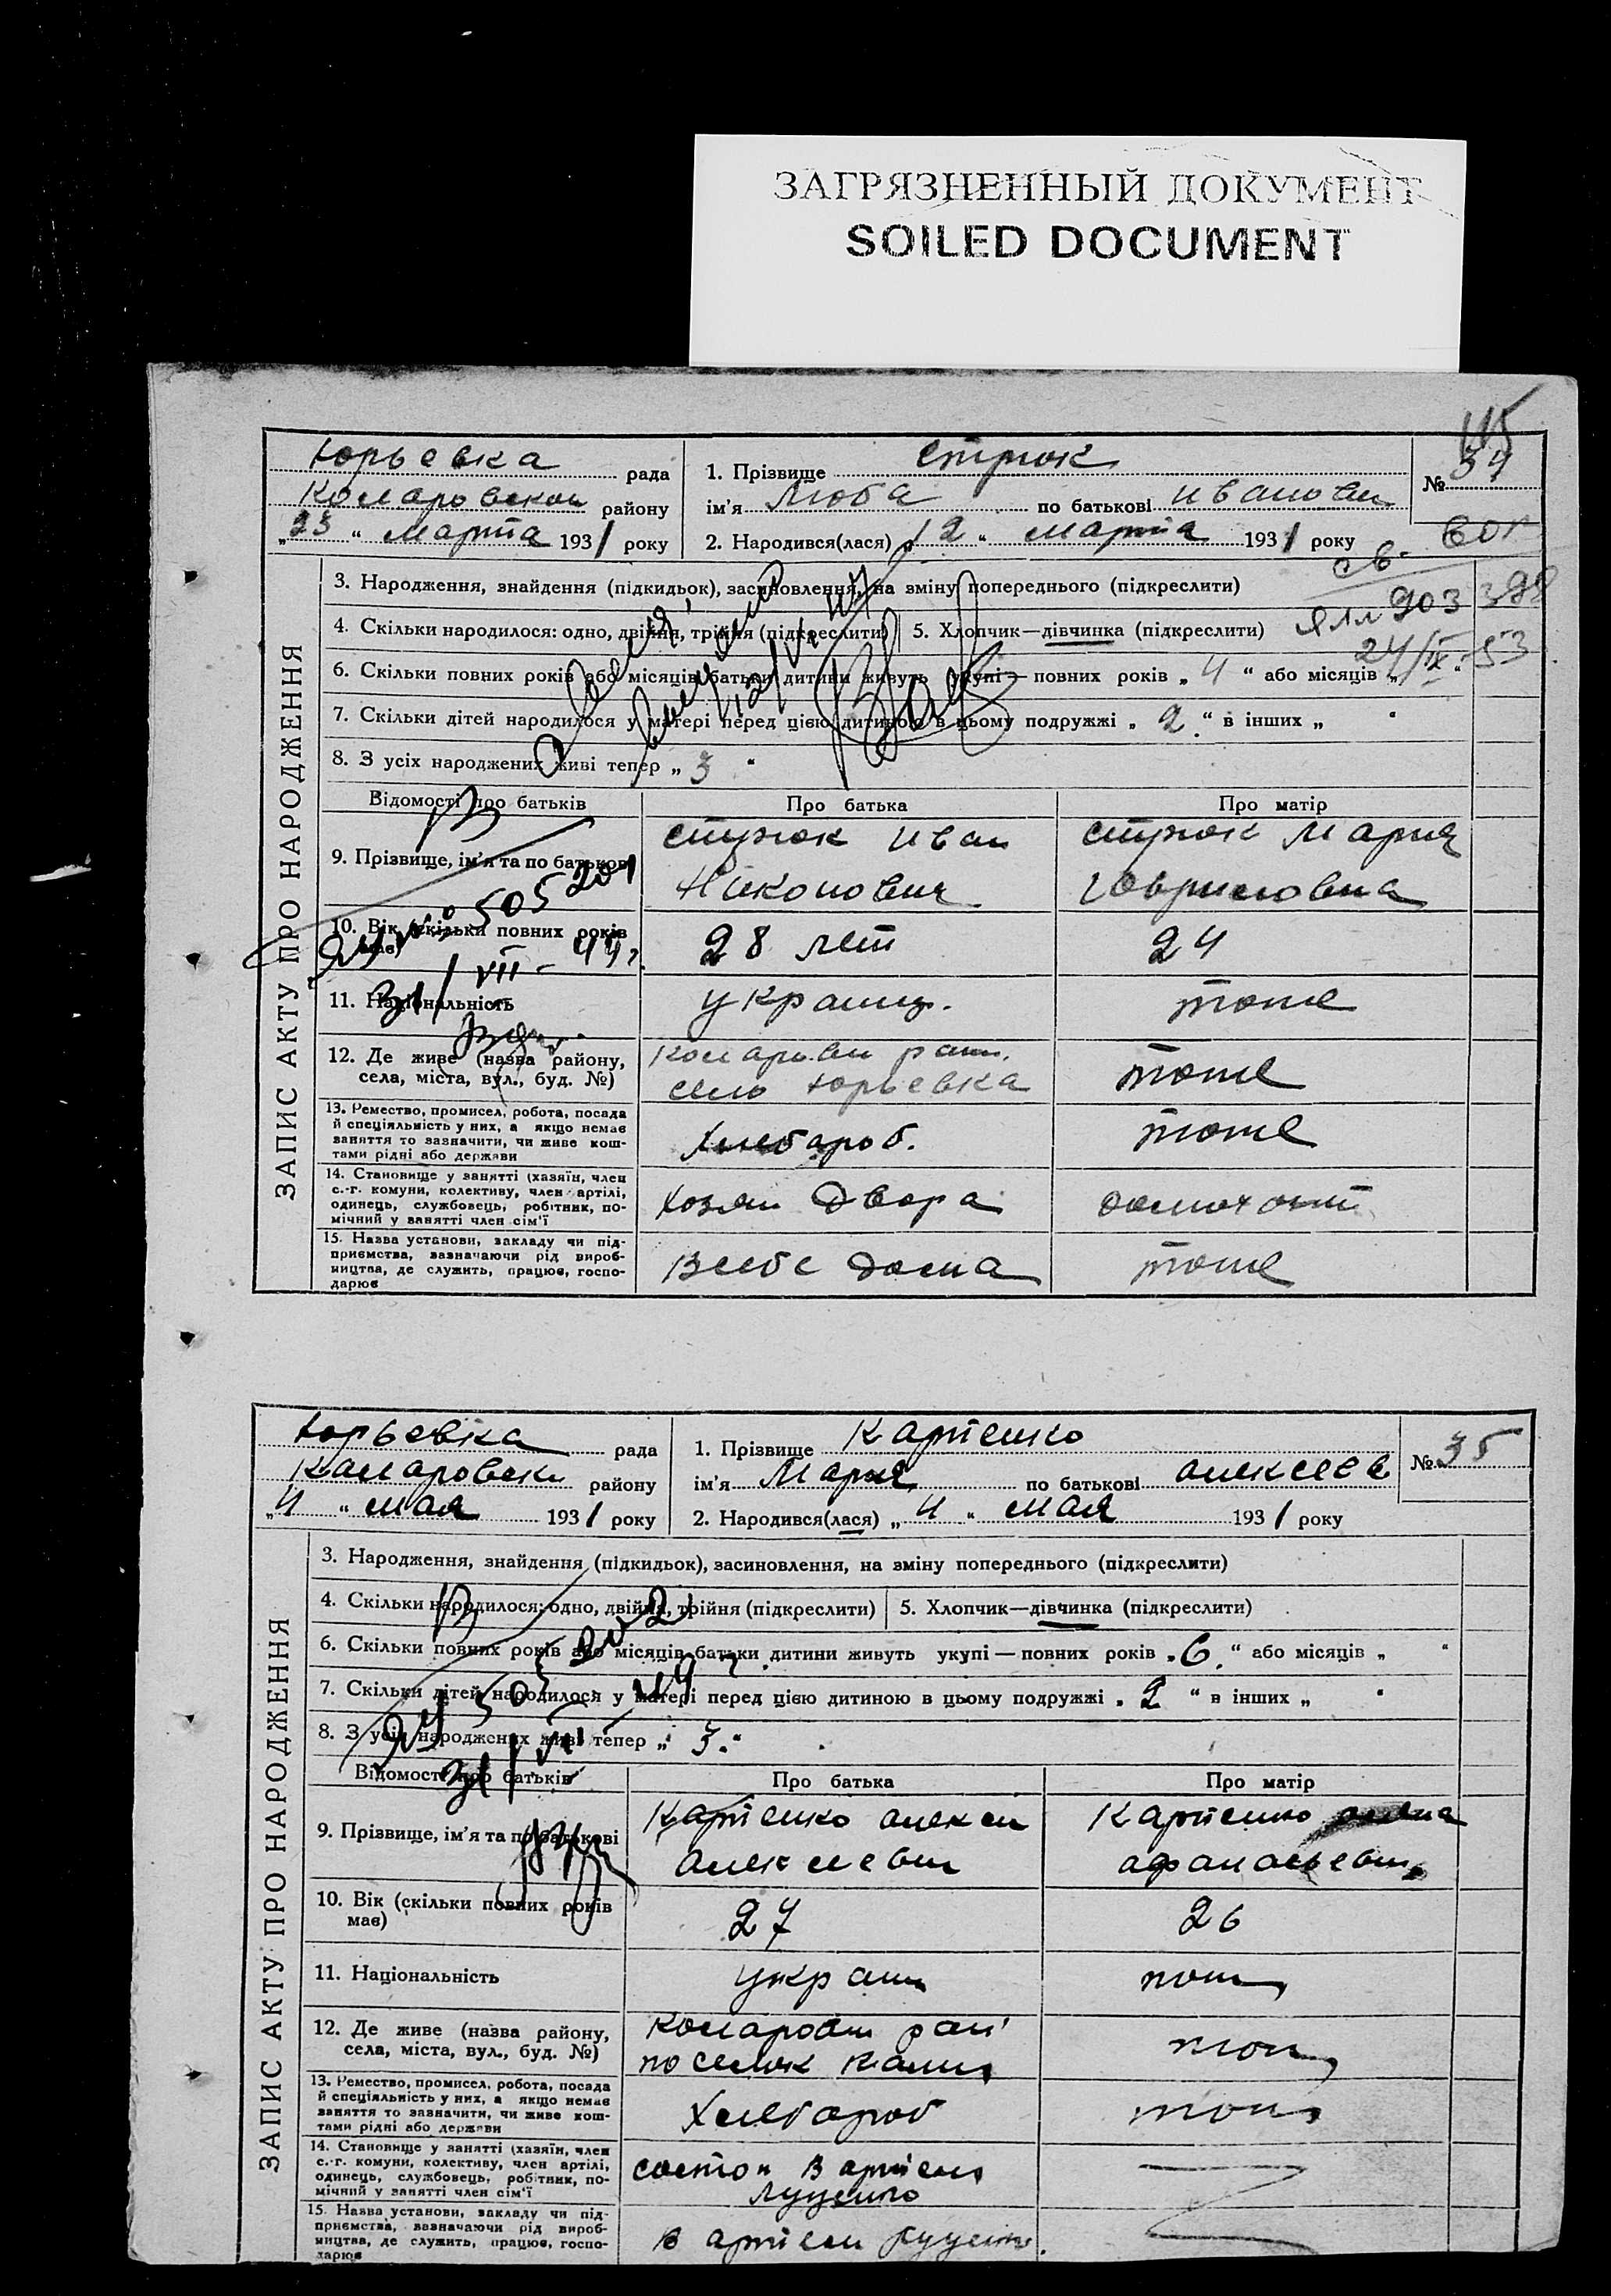 ЗАГРЯЗНЕННЫЙ ДОКУМЕНТ
SOILED DOCUMENT
115
ЗАПИС АКТУ ПРО НАРОДЖЕННЯ
Юрьевка рада
района
„23“ марта 1931 року
1. Прізвище Стрюк
ім'я Люба по батькові Ивановн
2. Народився(лася) „12“ марта 1931 року
№ 34
3. Народження, знайдення (підкидьок), засиновлення, на зміну попереднього (підкреслити)
903 398
4. Скільки народилося: одно, двійня, трійня (підкреслити) 5. Хлопчик—дівчинка (підкреслити)
24/IX-53
6. Скільки повних років або місяців батьки дитини живуть укупі — повних років „4“ або місяців „
7. Скільки дітей народилося у матері перед цією дитиною в цьому подружжі „2“ в інших „ “
8. З усіх народжених живі тепер „3“
Відомості про батьків Про батька Про матір
9. Прізвище, ім'я та по батькові
Стрюк Иван
Никонович
Стрюк Мария
505201
31/VII-49г.
10. Вік (скільки повних років має) 28 лет 24
11. Національність украинц. тоже
12. Де живе (назва району, села, міста, вул., буд. №)
село Юрьевка
тоже
13. Ремество, промисел, робота, посада
й спеціяльність у них, а якщо немає
заняття то зазначити, чи живе кош-
тами рідні або держави
Хлебароб. тоже
14. Становище у занятті (хазяїн, член
с.-г. комуни, колективу, член артілі,
одинець, службовець, робітник, по-
мічний у занятті член сім'ї
Хозяин двора
15. Назва установи, закладу чи під-
приємства, зазначаючи рід вироб-
ництва, де служить, працює, госпо-
дарює
В себе дома тоже
ЗАПИС АКТУ ПРО НАРОДЖЕННЯ
Юрьевка рада
району
„4“ мая 1931 року
1. Прізвище Картенко
ім'я Мария по батькові алексеев
2. Народився(лася) „4“ мая 1931 року
№ 35
3. Народження, знайдення (підкидьок), засиновлення, на зміну попереднього (підкреслити)
4. Скільки народилося: одно, двійня, трійня (підкреслити) 5. Хлопчик—дівчинка (підкреслити)
6. Скільки повних років або місяців батьки дитини живуть укупі — повних років „6.“ або місяців „ “
7. Скільки дітей народилося у матері перед цією дитиною в цьому подружжі „2“ в інших „ “
8. З усіх народжених живі тепер „3.“
Відомості про батьків Про батька Про матір
9. Прізвище, ім'я та по батькові
Картенко алексеи
Картенко
10. Вік (скільки повних років
має)
27 26
11. Національність украин
12. Де живе (назва району,
села, міста, вул., буд. №)
13. Ремество, промисел, робота, посада
й спеціяльність у них, а якщо немає
заняття то зазначити, чи живе кош-
тами рідні або держави
Хлебароб
14. Становище у занятті (хазяїн, член
с.-г. комуни, колективу, член артілі,
одинець, службовець, робітник, по-
мічний у занятті член сім'ї
состои в артели
Луценко
15. Назва установи, закладу чи під-
приємства, зазначаючи рід вироб-
ництва, де служить, працює, госпо-
дарює
в артели